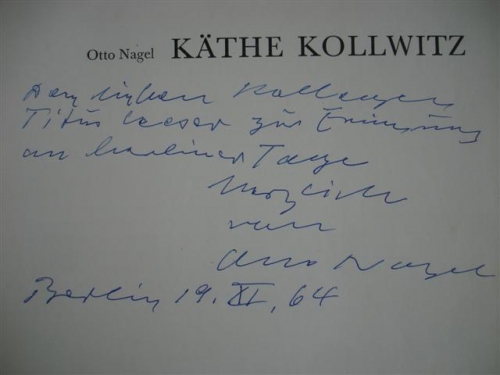 Otto Nagel KÄTHE KOLLWITZ
Dem lieben Kollegen
Titus Leeser zur Erinnerung
an berliner Tage
Herzlich
von
Otto Nagel
Berlin 19. XI. 64